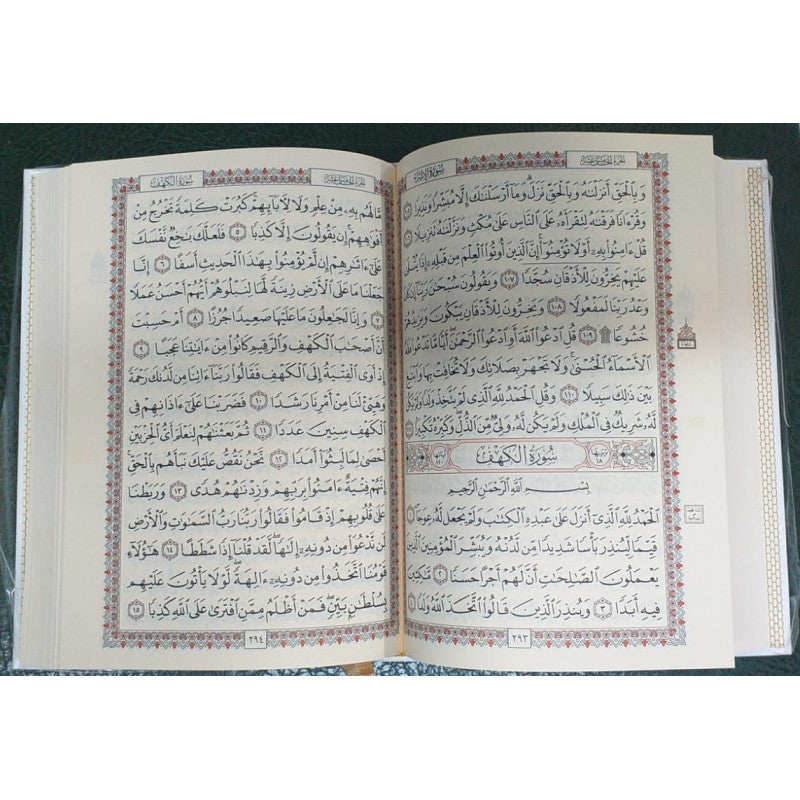 سُورَةُ الإِسۡرَاءِ
الجُزءُ الخَامِسَ عَشَرَ
وَبِٱلۡحَقِّ أَنزَلۡنَٰهُ وَبِٱلۡحَقِّ نَزَلَۗ وَمَآ أَرۡسَلۡنَٰكَ إِلَّا مُبَشِّرٗا وَنَذِيرٗا
وَقُرۡءَانٗا فَرَقۡنَٰهُ لِتَقۡرَأَهُۥ عَلَى ٱلنَّاسِ عَلَىٰ مُكۡثٖ وَنَزَّلۡنَٰهُ تَنزِيلٗا
قُلۡ ءَامِنُواْ بِهِۦٓ أَوۡ لَا تُؤۡمِنُوٓاْۚ إِنَّ ٱلَّذِينَ أُوتُواْ ٱلۡعِلۡمَ مِن قَبۡلِهِۦٓ إِذَا يُتۡلَىٰ
عَلَيۡهِمۡ يَخِرُّونَۤ لِلۡأَذۡقَانِۤ سُجَّدٗاۤ ١٠٧ وَيَقُولُونَ سُبۡحَٰنَ رَبِّنَآ إِن كَانَ
وَعۡدُ رَبِّنَا لَمَفۡعُولٗا ١٠٨ وَيَخِرُّونَ لِلۡأَذۡقَانِ يَبۡكُونَ وَيَزِيدُهُمۡ
خُشُوعٗا۩ ١٠٩ قُلِ ٱدۡعُواْ ٱللَّهَ أَوِ ٱدۡعُواْ ٱلرَّحۡمَٰنَۖ أَيّٗا مَّا تَدۡعُواْ فَلَهُ
ٱلۡأَسۡمَآءُ ٱلۡحُسۡنَىٰۚ وَلَا تَجۡهَرۡ بِصَلَاتِكَ وَلَا تُخَافِتۡ بِهَا وَٱبۡتَغِ
بَيۡنَ ذَٰلِكَ سَبِيلٗا ١١٠ وَقُلِ ٱلۡحَمۡدُ لِلَّهِ ٱلَّذِي لَمۡ يَتَّخِذۡ وَلَدٗا وَلَمۡ يَكُن
لَّهُۥ شَرِيكٞ فِي ٱلۡمُلۡكِ وَلَمۡ يَكُن لَّهُۥ وَلِيّٞ مِّنَ ٱلذُّلِّۖ وَكَبِّرۡهُ تَكۡبِيرَۢا
سُورَةُ الكَهۡفِ
بِسۡمِ ٱللَّهِ ٱلرَّحۡمَٰنِ ٱلرَّحِيمِ
ٱلۡحَمۡدُ لِلَّهِ ٱلَّذِيٓ أَنزَلَ عَلَىٰ عَبۡدِهِ ٱلۡكِتَٰبَ وَلَمۡ يَجۡعَل لَّهُۥ عِوَجَاۜ ١
قَيِّمٗا لِّيُنذِرَ بَأۡسٗا شَدِيدٗا مِّن لَّدُنۡهُ وَيُبَشِّرَ ٱلۡمُؤۡمِنِينَ ٱلَّذِينَ
يَعۡمَلُونَ ٱلصَّٰلِحَٰتِ أَنَّ لَهُمۡ أَجۡرًا حَسَنٗا ٢ مَّٰكِثِينَ
فِيهِ أَبَدٗا ٣ وَيُنذِرَ ٱلَّذِينَ قَالُواْ ٱتَّخَذَ ٱللَّهُ وَلَدٗا ٤
٢٩٣
سُورَةُ الكَهۡفِ
الجُزءُ الخَامِسَ عَشَرَ
مَّا لَهُم بِهِۦ مِنۡ عِلۡمٖ وَلَا لِأٓبَآئِهِمۡۚ كَبُرَتۡ كَلِمَةٗ تَخۡرُجُ مِنۡ
أَفۡوَٰهِهِمۡۚ إِن يَقُولُونَ إِلَّا كَذِبٗا ٥ فَلَعَلَّكَ بَٰخِعٞ نَّفۡسَكَ
عَلَىٰٓ ءَاثَٰرِهِمۡ إِن لَّمۡ يُؤۡمِنُواْ بِهَٰذَا ٱلۡحَدِيثِ أَسَفًا ٦ إِنَّا
جَعَلۡنَا مَا عَلَى ٱلۡأَرۡضِ زِينَةٗ لَّهَا لِنَبۡلُوَهُمۡ أَيُّهُمۡ أَحۡسَنُ عَمَلٗا
٧ وَإِنَّا لَجَٰعِلُونَ مَا عَلَيۡهَا صَعِيدٗا جُرُزًا ٨ أَمۡ حَسِبۡتَ
أَنَّ أَصۡحَٰبَ ٱلۡكَهۡفِ وَٱلرَّقِيمِ كَانُواْ مِنۡ ءَايَٰتِنَا عَجَبًا ٩
إِذۡ أَوَى ٱلۡفِتۡيَةُ إِلَى ٱلۡكَهۡفِ فَقَالُواْ رَبَّنَآ ءَاتِنَا مِن لَّدُنكَ رَحۡمَةٗ
وَهَيِّئۡ لَنَا مِنۡ أَمۡرِنَا رَشَدٗا ١٠ فَضَرَبۡنَا عَلَىٰٓ ءَاذَانِهِمۡ فِي
ٱلۡكَهۡفِ سِنِينَ عَدَدٗا ١١ ثُمَّ بَعَثۡنَٰهُمۡ لِنَعۡلَمَ أَيُّ ٱلۡحِزۡبَيۡنِ
أَحۡصَىٰ لِمَا لَبِثُوٓاْ أَمَدٗا ١٢ نَّحۡنُ نَقُصُّ عَلَيۡكَ نَبَأَهُم بِٱلۡحَقِّۚ
إِنَّهُمۡ فِتۡيَةٌ ءَامَنُواْ بِرَبِّهِمۡ وَزِدۡنَٰهُمۡ هُدٗى ١٣ وَرَبَطۡنَا
عَلَىٰ قُلُوبِهِمۡ إِذۡ قَامُواْ فَقَالُواْ رَبُّنَا رَبُّ ٱلسَّمَٰوَٰتِ وَٱلۡأَرۡضِ
لَن نَّدۡعُوَاْ مِن دُونِهِۦٓ إِلَٰهٗاۖ لَّقَدۡ قُلۡنَآ إِذٗا شَطَطًا ١٤ هَٰٓؤُلَآءِ
قَوۡمُنَا ٱتَّخَذُواْ مِن دُونِهِۦٓ ءَالِهَةٗۖ لَّوۡلَا يَأۡتُونَ عَلَيۡهِم
بِسُلۡطَٰنِۭ بَيِّنٖۖ فَمَنۡ أَظۡلَمُ مِمَّنِ ٱفۡتَرَىٰ عَلَى ٱللَّهِ كَذِبٗا ١٥
٢٩٤